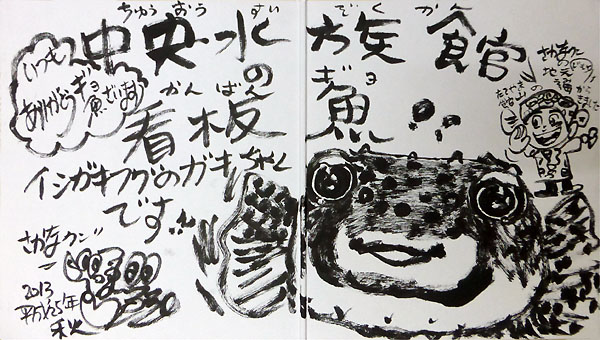 ちゅうおうすいぞくかん
中央水族館
の
かんばん ギョ
看板魚
いつも
ありがとう
ギョ
魚ざいます
イシガキフグのガキちゃん
です!!
さかなクン
2013
平成25年
秋
さかなクン
の
地元
館